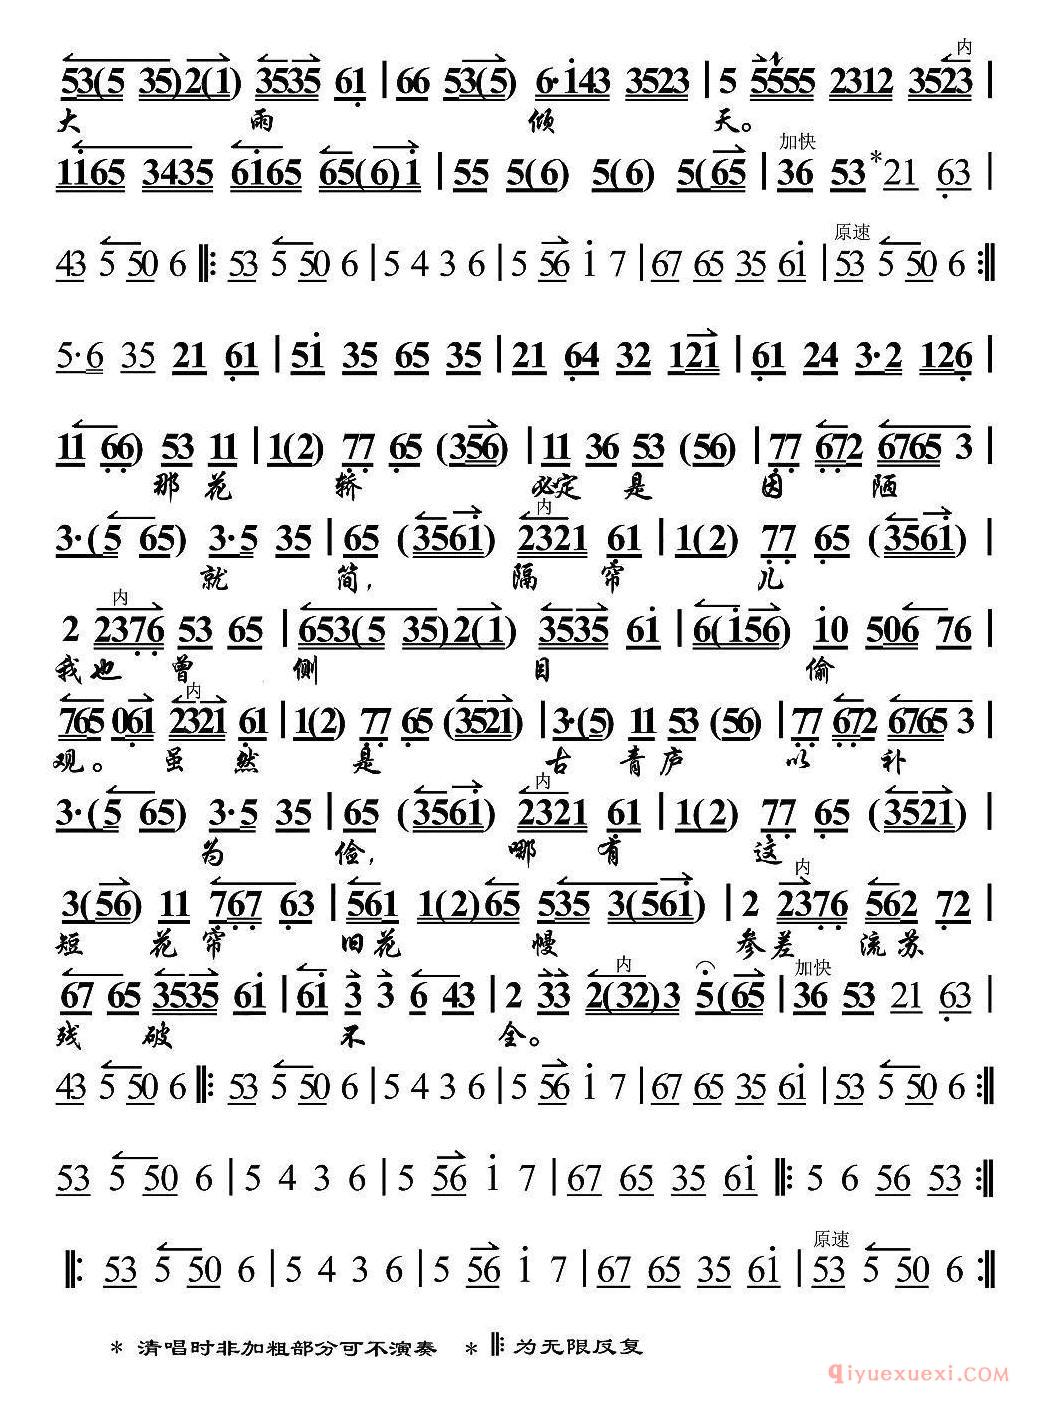 内
53(5 35)2(1) 3535 61 | 66 53(5) 6·i43 3523 | 5 5555 2312 3523 |
大 雨 倾 天。
加快
1i65 3435 6i65 65(6)i | 55 5(6) 5(6) 5(65 | 36 53 *21 63 |
原速
43 5 50 6 ‖: 53 5 50 6 | 5 4 3 6 | 5 56 i 7 | 67 65 35 6i | 53 5 50 6 :‖
5·6 35 21 61 | 5i 35 65 35 | 21 64 32 121 | 61 24 3·2 126 |
11 66) 53 11 | 1(2) 77 65 (356) | 11 36 53 (56) | 77 672 6765 3 |
那 花 轿 必定 是 因 陋
内
3·(5 65) 3·5 35 | 65 (356i) 2321 61 | 1(2) 77 65 (356i) |
就 简， 隔 帘 儿
内
2 2376 53 65 | 653(5 35)2(1) 3535 6i | 6(i56) i0 506 76 |
我 也 曾 侧 目 偷
内
765 061 2321 61 | 1(2) 77 65 (3521) | 3·(5) 11 53 (56) | 77 672 6765 3 |
观。 虽 然 是 古 青 庐 以 补
内
3·(5 65) 3·5 35 | 65 (356i) 2321 61 | 1(2) 77 65 (3521) |
为 俭， 哪 有 这
内
3(56) 11 767 63 | 561 1(2)65 535 3(56i) | 2 2376 562 72 |
短 花 帘 旧 花 幔 参 差 流 苏
内 加快
67 65 3535 6i | 6i 3 3 6 43 | 2 33 2(32)3 5(65 | 36 53 21 63 |
残 破 不 全。
43 5 50 6 ‖: 53 5 50 6 | 5 4 3 6 | 5 56 i 7 | 67 65 35 6i | 53 5 50 6 :‖
53 5 50 6 | 5 4 3 6 | 5 56 i 7 | 67 65 35 6i ‖: 5 6 56 53 :‖
原速
‖: 53 5 50 6 | 5 4 3 6 | 5 56 i 7 | 67 65 35 6i | 53 5 50 6 :‖
* 清唱时非加粗部分可不演奏 * ‖: 为无限反复
qiyuexuexi.COM